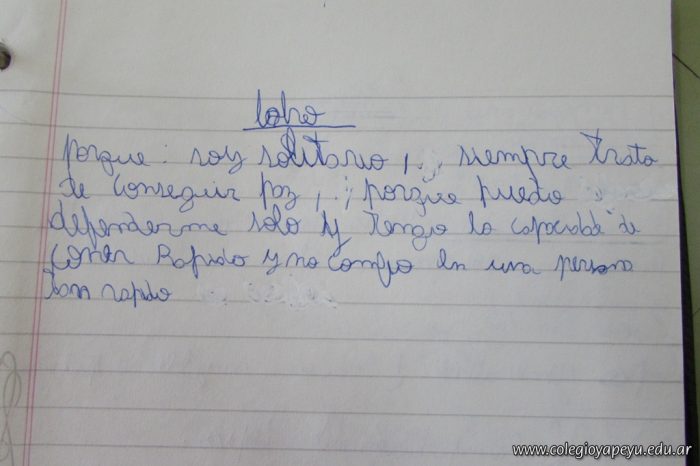 lobo
porque: soy solitario, . . siempre trato
de conseguir paz , . ; porque puedo
defenderme solo y tengo la capacidad de
correr Rapido y no confio en una persona
tan rapido
www.colegioyapeyu.edu.ar